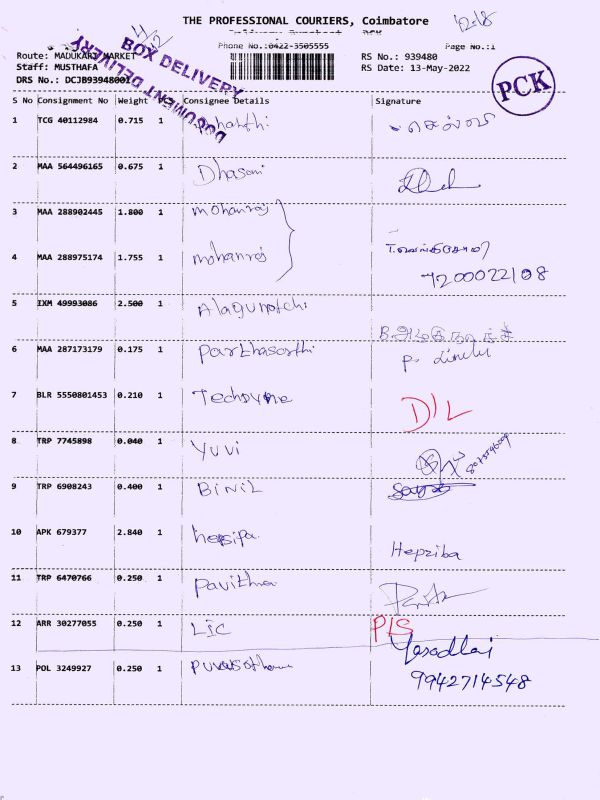 THE PROFESSIONAL COURIERS, Coimbatore
Phone No.:0422-3505555 Page No.:1
Route: MADUKARY MARKET RS No.: 939480
Staff: MUSTHAFA RS Date: 13-May-2022
DRS No.: DCJB939480
BOX DELIVERY
DOCUMENT DELIVERY
PCK
S No Consignment No Weight PCS Consignee Details Signature
1 TCG 40112984 0.715 1
2 MAA 564496165 0.675 1 Dhasani
3 MAA 288902445 1.800 1 mohanraj
4 MAA 288975174 1.755 1 mohanraj
7200022108
5 IXM 49993086 2.500 1 Alagunatchi
6 MAA 287173179 0.175 1 Parthasarthi P.
7 BLR 5550801453 0.210 1 Techdyne D/L
8 TRP 7745898 0.040 1 Yuvi
9 TRP 6908243 0.400 1 BINIL
10 APK 679377 2.840 1 hepsipa Hepziba
11 TRP 6470766 0.250 1 Pavithra
12 ARR 30277055 0.250 1 LIC P/S
13 POL 3249927 0.250 1
9942714548